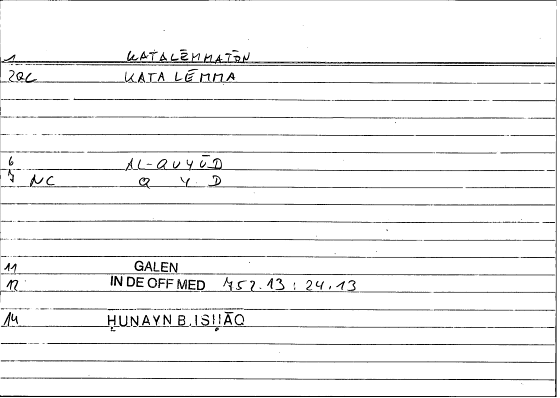 1 KATALĒMMATŌN
2QC KATA LĒMMA
6 AL-QUYŪD
7 NC Q Y D
11 GALEN
12 IN DE OFF MED 752.13 : 24.13
14 ḤUNAYN B.ISḤĀQ